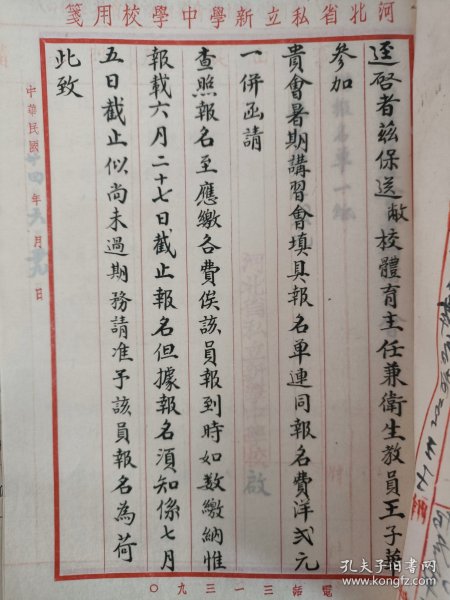 河北省私立新學中學校用箋
逕啓者茲保送敝校體育主任兼衛生教員王子
參加
貴會暑期講習會填具報名單連同報名費洋弍元
一併函請
查照報名至應繳各費俟該員報到時如数繳納惟
報載六月二十七日截止報名但據報名須知係七月
五日截止似尚未過期務請准予該員報名為荷
此致
中華民國廿四年六月日
電話三一三九〇
啟
孔夫子旧书网